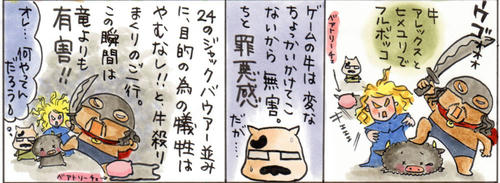 ウゴォォォ
牛
アレックスと
ヒメユリで
フルボッコ
ベアトリーチェ
ゲームの牛は変な
ちょっかいかけてこ
ないから無害。
ちと罪悪感
だが…
24のジャックバウアー並み
に、目的の為の犠牲は
やむなし!!と牛殺り
まくりのご一行。
この瞬間は
竜よりも
有害!!
オレ…何やってん
だろう…
ベアトリーチェ